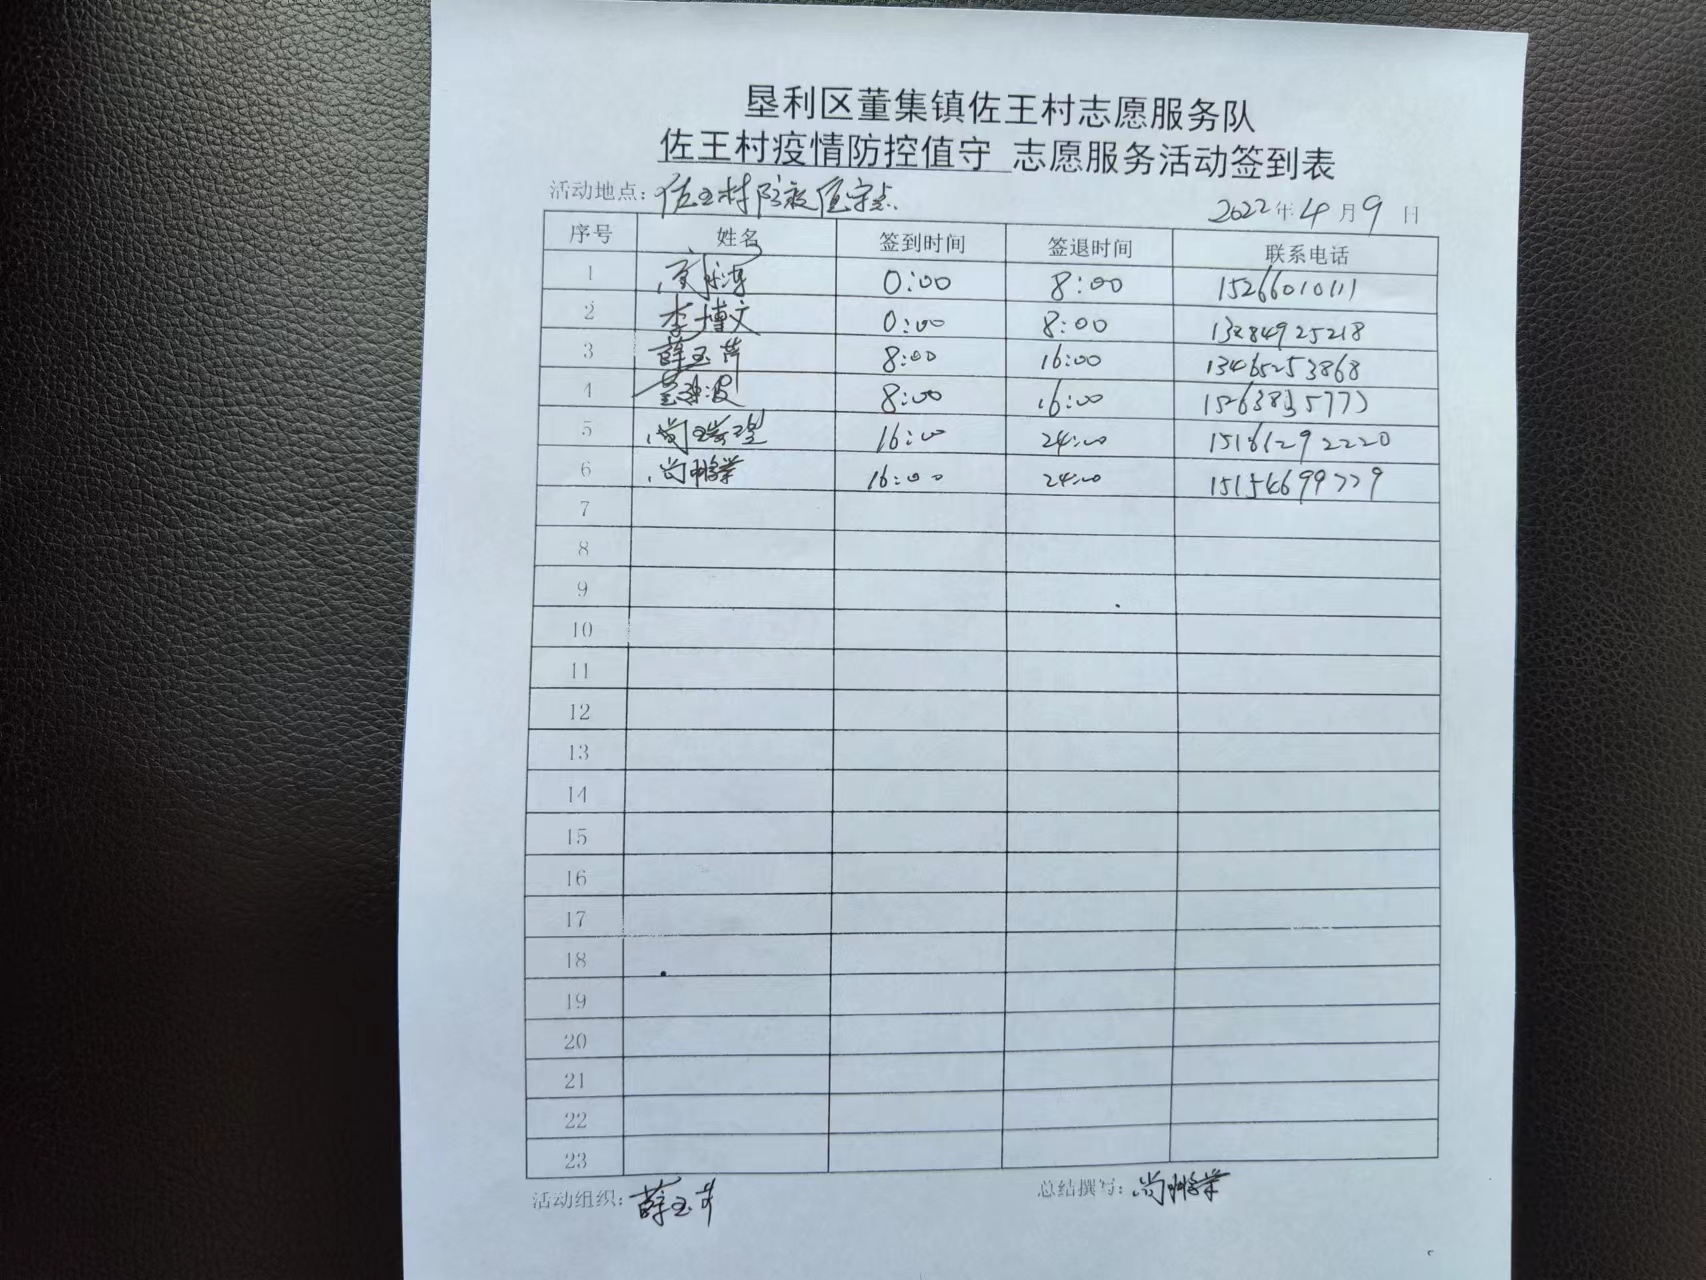 垦利区董集镇佐王村志愿服务队
佐王村疫情防控值守 志愿服务活动签到表
活动地点: 佐王村防疫值守点
2022年4月9日
序号 姓名 签到时间 签退时间 联系电话
1 0:00 8:00 15266010111
2 李博文 0:00 8:00 13284925218
3 薛玉芹 8:00 16:00 13465253868
4 8:00 16:00 15263835773
5 尚 16:00 24:00 15161292220
6 尚鹏举 16:00 24:00 15154699779
7
8
9
10
11
12
13
14
15
16
17
18
19
20
21
22
23
活动组织: 薛玉芹 总结撰写: 尚鹏举